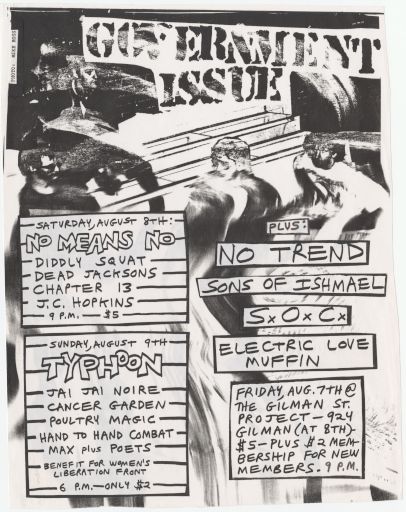 GOVERNMENT
ISSUE
SATURDAY, AUGUST 8TH:
NO MEANS NO
DIDDLY SQUAT
DEAD JACKSONS
CHAPTER 13
J.C. HOPKINS
9 P.M. — $5
SUNDAY, AUGUST 9TH
TYPHOON
JAI JAI NOIRE
CANCER GARDEN
POULTRY MAGIC
HAND TO HAND COMBAT
MAX PLUS POETS
BENEFIT FOR WOMEN'S
LIBERATION FRONT
6 P.M.—ONLY $2
PLUS:
NO TREND
SONS OF ISHMAEL
SxOxCx
ELECTRIC LOVE
MUFFIN
FRIDAY, AUG. 7TH @
THE GILMAN ST.
PROJECT – 924
GILMAN (AT 8TH)-
$5-PLUS $2 MEM-
BERSHIP FOR NEW
MEMBERS. 9 P.M.